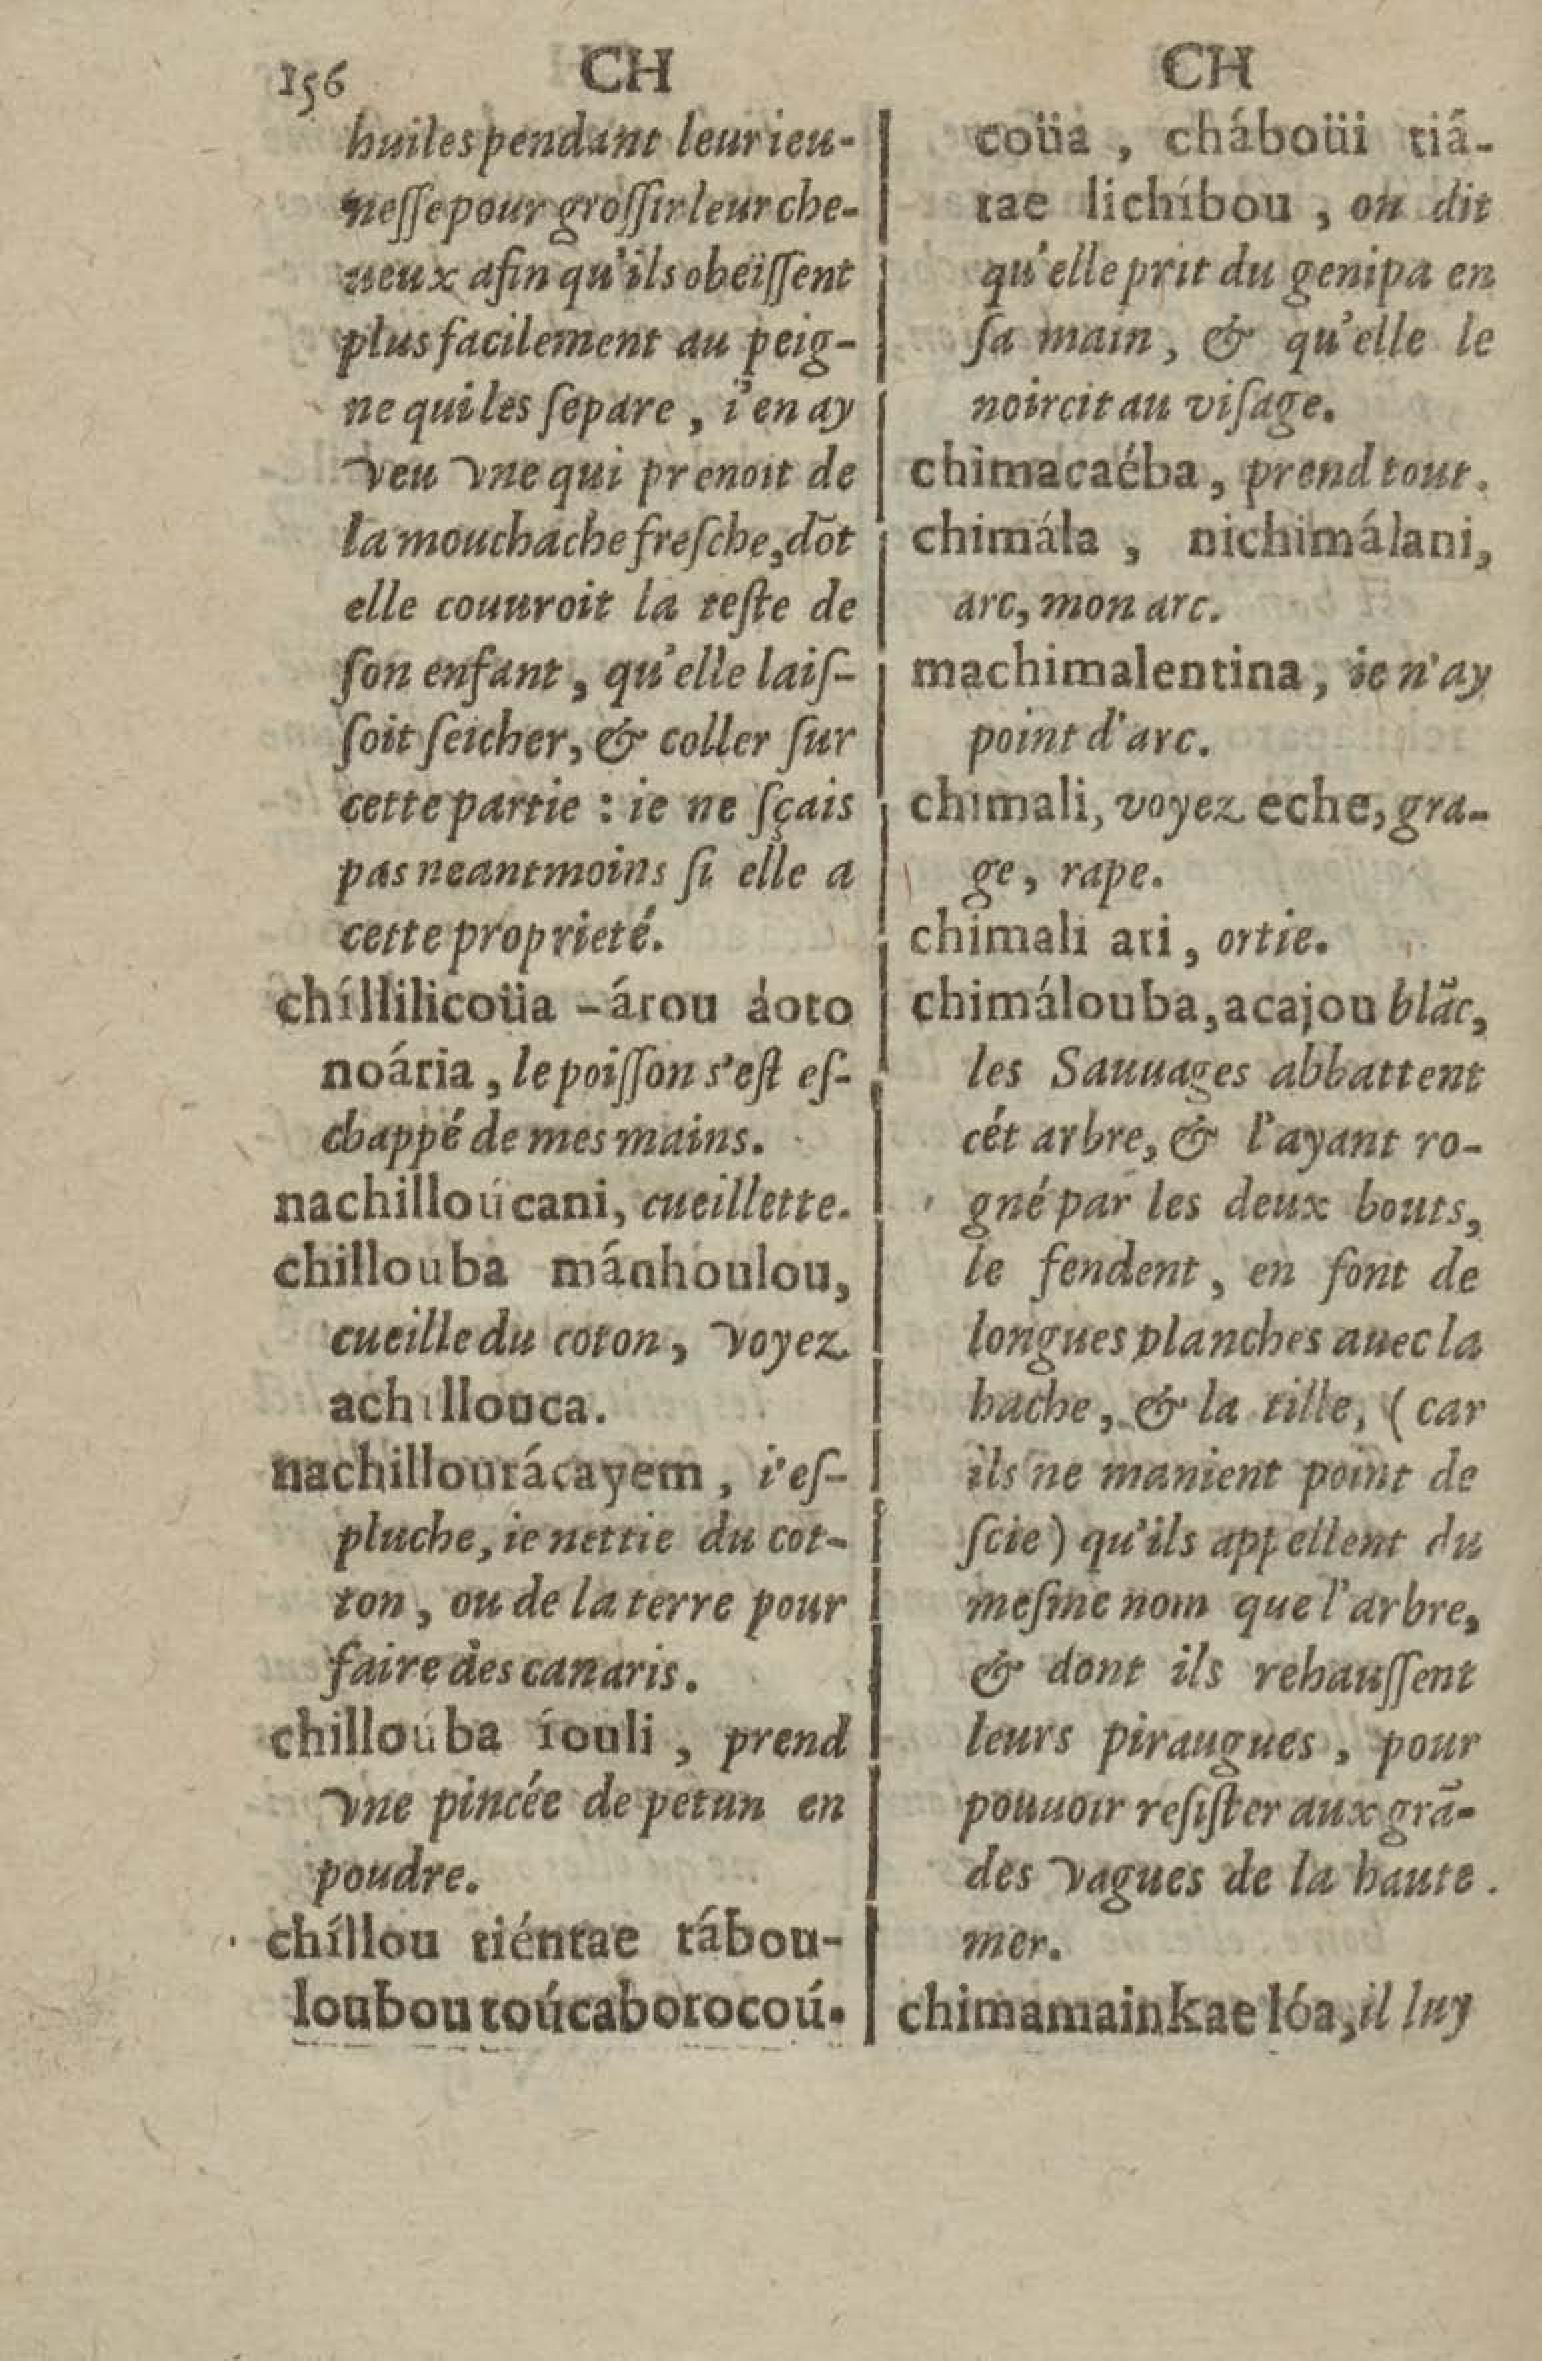 156 CH CH
huiles pendant leur ieu-
neſſe pour groſſir leur che-
ueux afin qu'ils obeïſſent
plus facilement au peig-
ne qui les ſepare, i'en ay
veu vne qui prenoit de
la mouchache freſche, dõt
elle couuroit la teſte de
ſon enfant, qu'elle laiſ-
ſoit ſeicher, & coller ſur
cette partie : ie ne ſçais
pas neantmoins ſi elle a
cette proprieté.
chíllilicoüa -árou áoto
noária, le poiſſon s'eſt eſ-
chappé de mes mains.
nachilloúcani, cueillette.
chillouba mánhoulou,
cueille du coton, voyez
achillouca.
nachillourácayem, i'eſ-
pluche, ie nettie du cot-
ton, ou de la terre pour
faire des canaris.
chilloúba íouli, prend
vne pincée de petun en
poudre.
chíllou tiéntae tábou-
loubou toúcaborocoú.
coüa, cháboüi tiá-
tae lichíbou, on dit
qu'elle prit du genipa en
ſa main, & qu'elle le
noircit au viſage.
chimacaéba, prend tout.
chimála, nichimálani,
arc, mon arc.
machimalentina, ie n'ay
point d'arc.
chimali, voyez eche, gra-
ge, rape.
chimali ati, ortie.
chimálouba, acajou blãc,
les Sauuages abbattent
cét arbre, & l'ayant ro-
gné par les deux bouts,
le fendent, en font de
longues planches auec la
hache, & la tille, (car
ils ne manient point de
ſcie) qu'ils appellent du
meſme nom que l'arbre,
& dont ils rehauſſent
leurs piraugues, pour
pouuoir reſiſter aux grã-
des vagues de la haute.
mer.
chimamainkae lóa, il luy